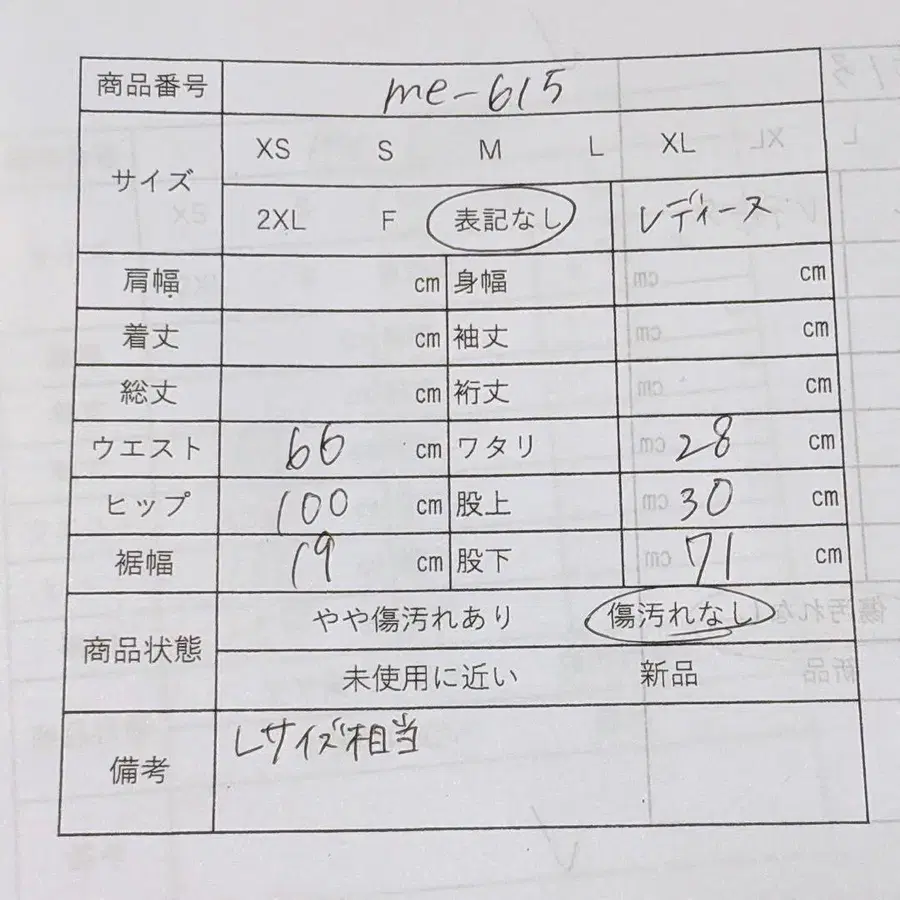 商品番号 me-615
サイズ XS S M L XL
2XL F 表記なし レディース
肩幅 cm 身幅 cm
着丈 cm 袖丈 cm
総丈 cm 裄丈 cm
ウエスト 66 cm ワタリ 28 cm
ヒップ 100 cm 股上 30 cm
裾幅 19 cm 股下 71 cm
商品状態 やや傷汚れあり 傷汚れなし
未使用に近い 新品
備考 Lサイズ相当